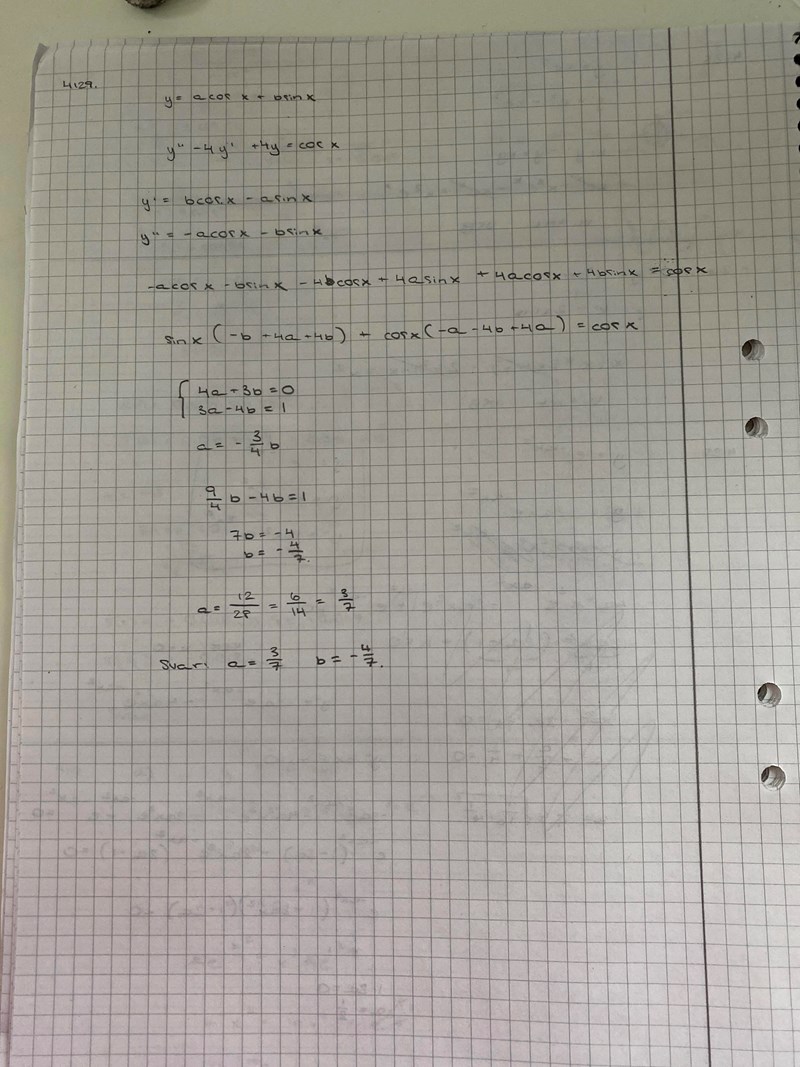 4129.
y = a cos x + b sin x
y'' - 4y' + 4y = cos x
y' = b cos x - a sin x
y'' = -a cos x - b sin x
-a cos x - b sin x - 4b cos x + 4a sin x + 4a cos x + 4b sin x = cos x
sin x (-b + 4a + 4b) + cos x (-a - 4b + 4a) = cos x
4a + 3b = 0
3a - 4b = 1
a = - 3/4 b
9/4 b - 4b = 1
7b = -4
b = - 4/7.
a = 12/28 = 6/14 = 3/7
Svar: a = 3/7 b = - 4/7.